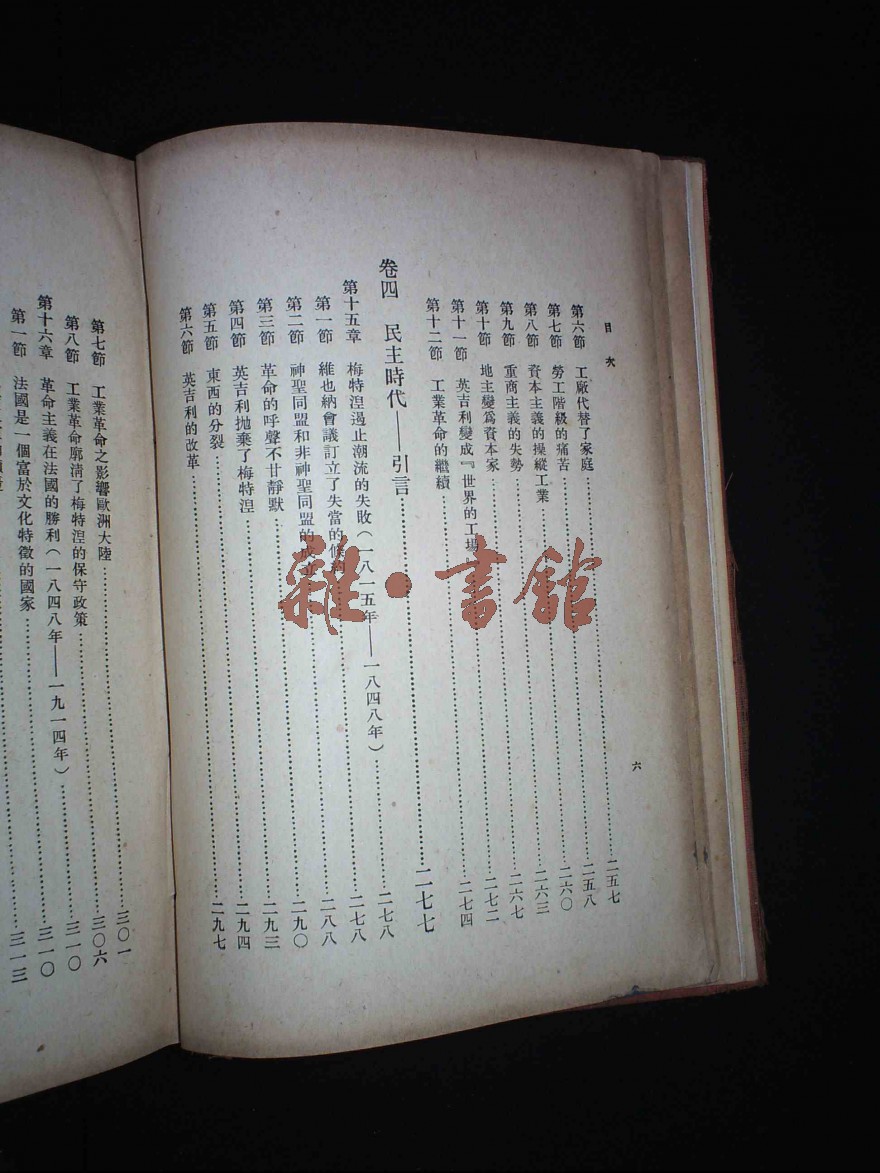 目次
六
第六節 工廠代替了家庭……二五七
第七節 勞工階級的痛苦……二五八
第八節 資本主義的操縱工業……二六〇
第九節 重商主義的失勢……二六三
第十節 地主變爲資本家……二六七
第十一節 英吉利變成『世界的工場……二七二
第十二節 工業革命的繼續……二七四
卷四 民主時代——引言……二七七
第十五章 梅特涅遏止潮流的失敗(一八一五年——一八四八年)……二七八
第一節 維也納會議訂立了失當的條約……二七八
第二節 神聖同盟和非神聖同盟的成立……二八八
第三節 革命的呼聲不甘靜默……二九〇
第四節 英吉利拋棄了梅特涅……二九三
第五節 東西的分裂……二九四
第六節 英吉利的改革……二九七
第七節 工業革命之影響歐洲大陸……三〇一
第八節 工業革命廓清了梅特涅的保守政策……三〇六
第十六章 革命主義在法國的勝利(一八四八年——一九一四年)……三一〇
第一節 法國是一個富於文化特徵的國家……三一〇
三一三
雜·書館